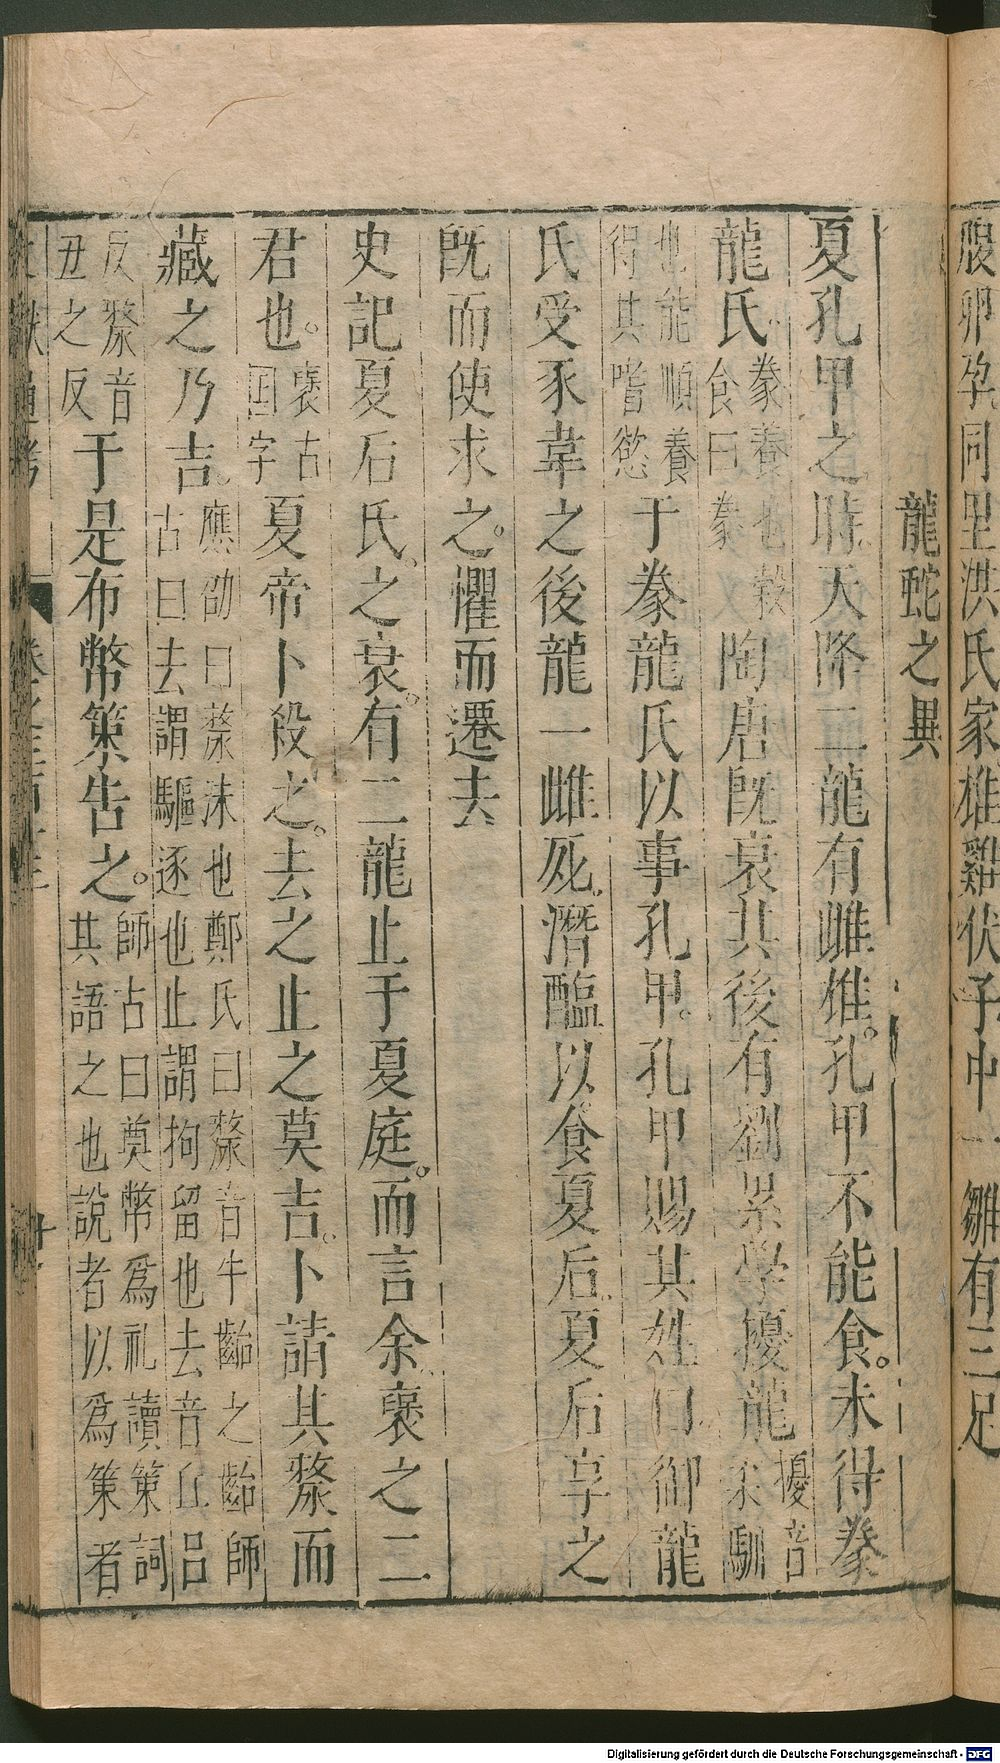 腹卵孕同里洪氏家雄雞伏子中一雛有三足
龍蛇之異
夏孔甲之時天降二龍有雌雄。孔甲不能食。未得豢
龍氏。豢養也穀食曰豢陶唐既衰其後有劉累學擾龍擾音柔馴
也能順養得其嗜慾于豢龍氏以事孔甲。孔甲賜其姓曰御龍
氏受豕韋之後龍一雌死。潛醢以食夏后。夏后享之
既而使求之。懼而遷去
史記夏后氏。之衰。有二龍止于夏庭。而言余褒之二
君也。褒古囯字夏帝卜殺之。去之止之莫吉。卜請其漦而
藏之乃吉。應劭曰漦沬也鄭氏曰漦音牛齝之齝師古曰去謂驅逐也止謂拘留也去音丘呂
反漦音丑之反于是布幣策告之。師古曰奠幣爲礼讀策詞其語之也說者以爲策者
Digitalisierung gefördert durch die Deutsche Forschungsgemeinschaft - DFG